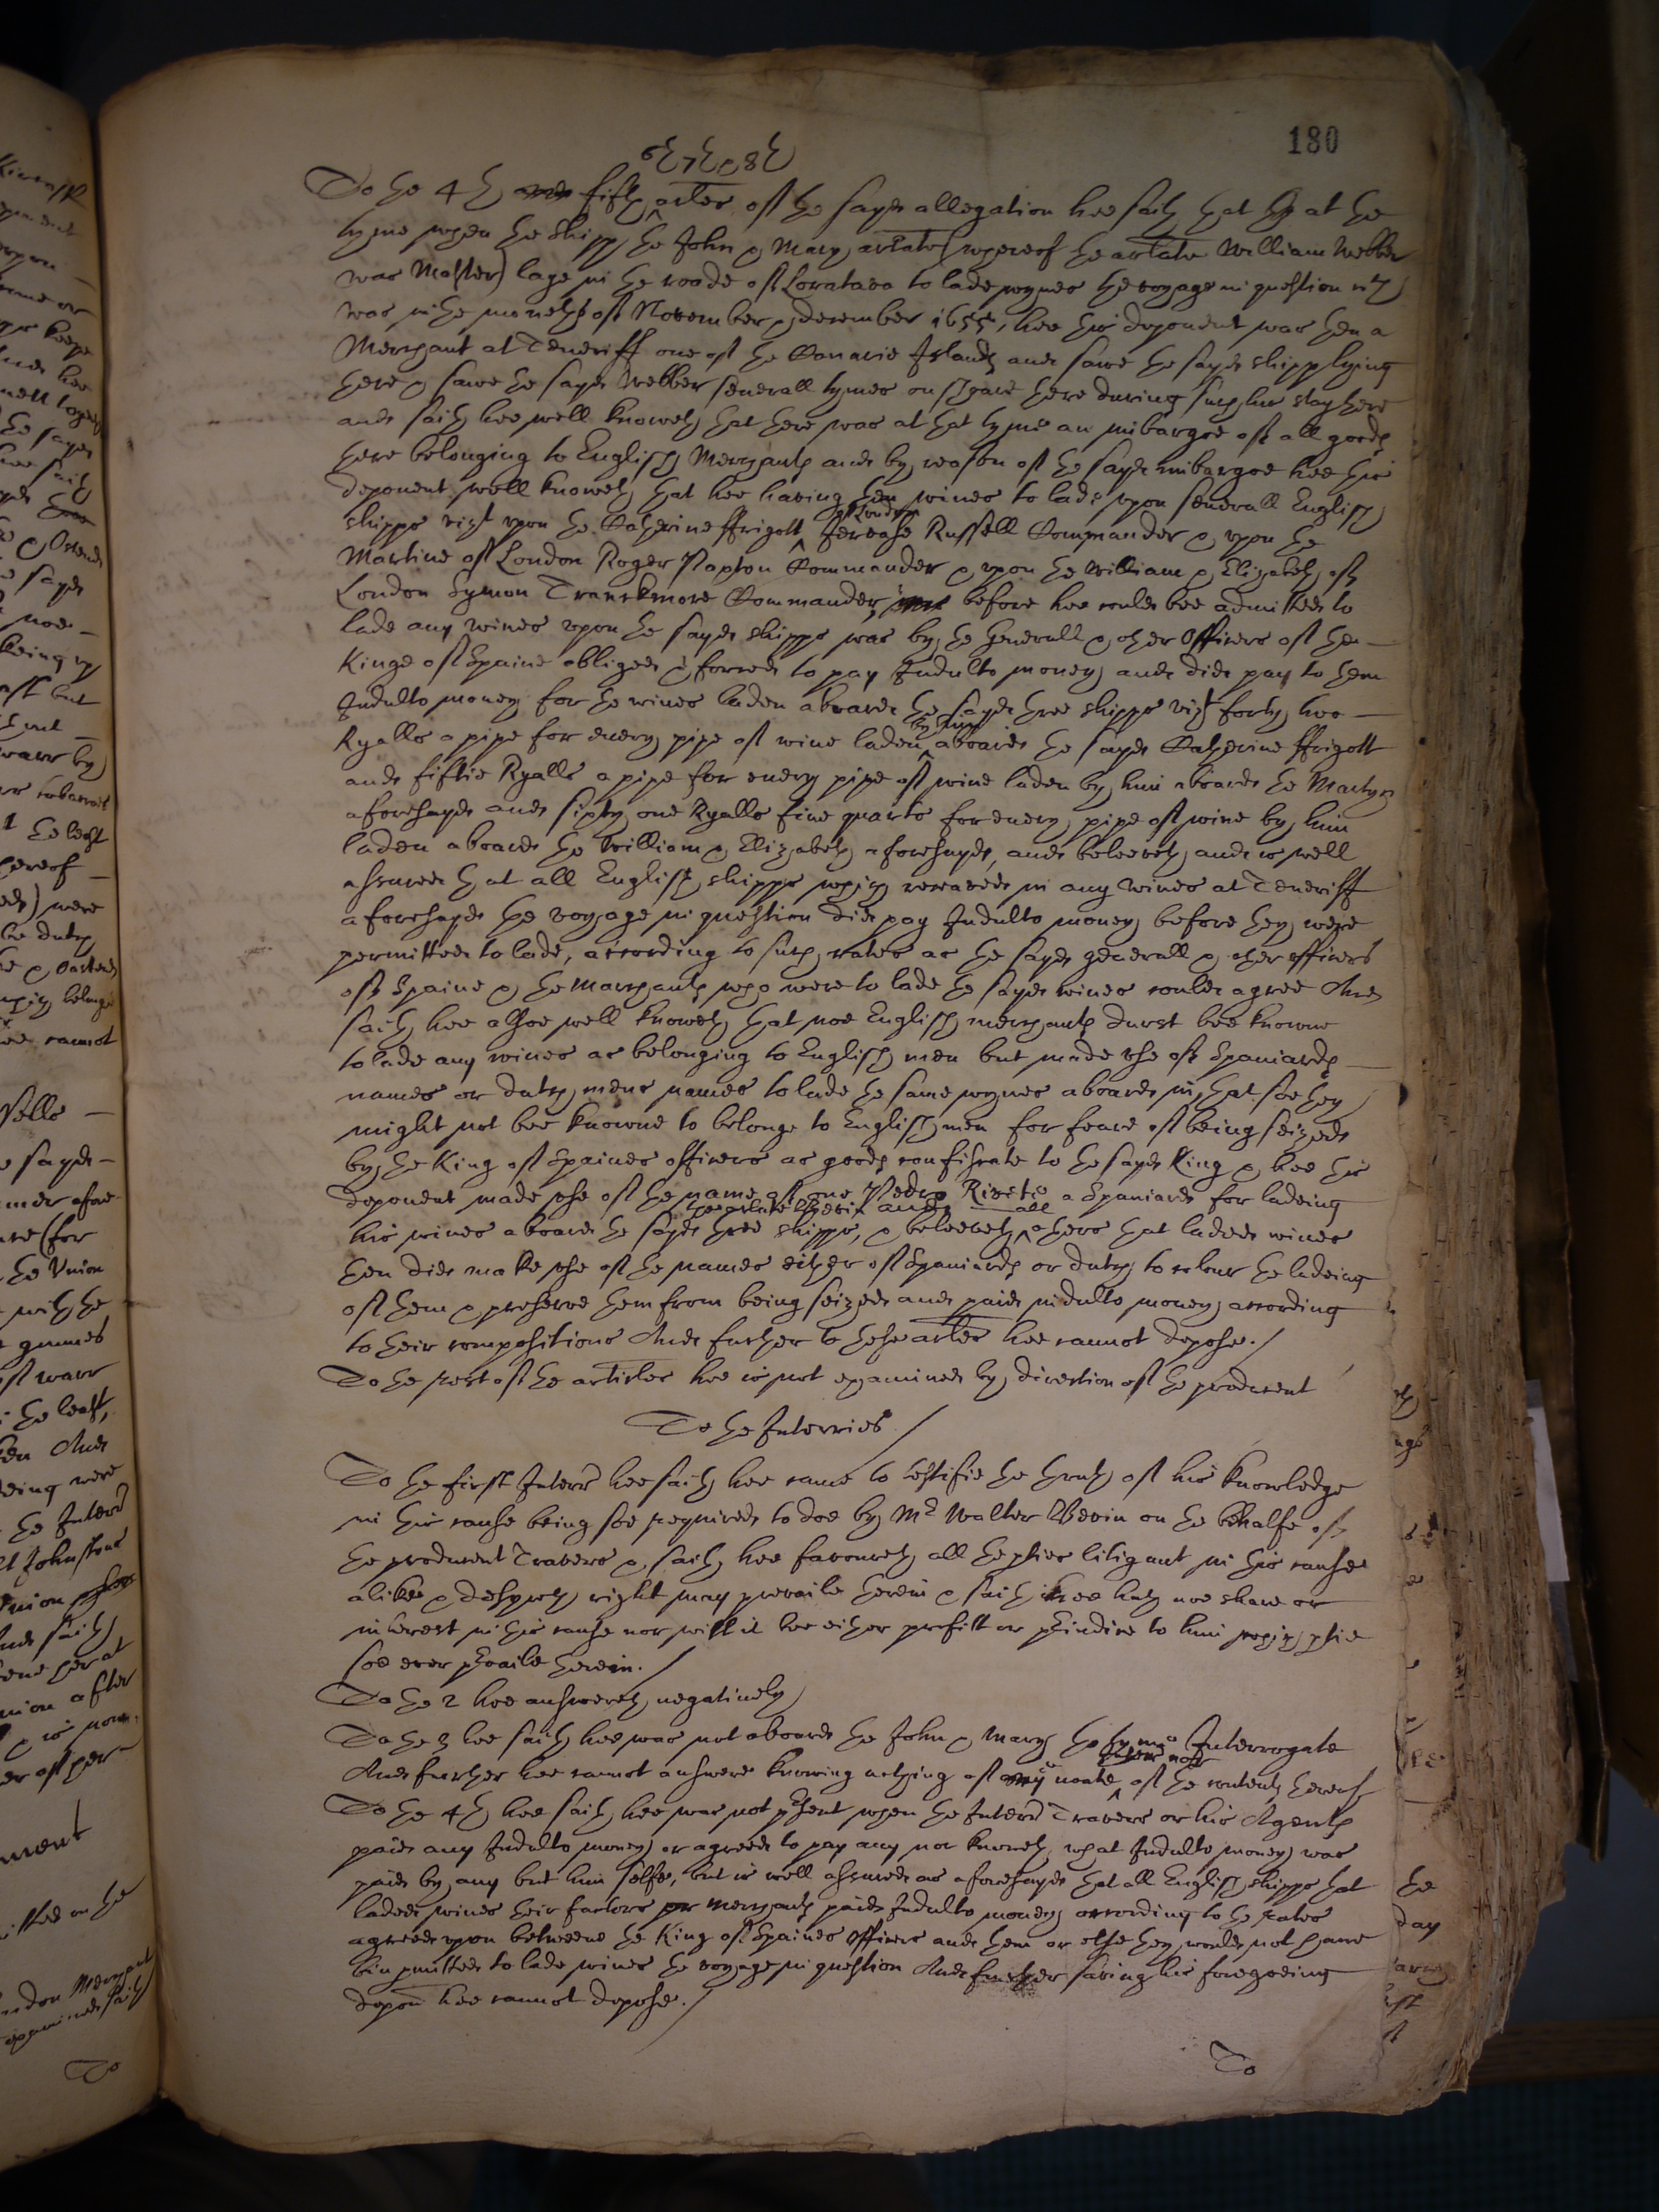 180
6th 7th & 8th
To the 4th and fifth artles of the sayd allegation hee saith that at the
tyme when the shipp the John & Mary arlate (whereof the arlate William Webber
was Master) laye in the roade of Loratava to lade wynes the voyage in question vizt
was in the moneths of November & december 1655, hee this deponent was then a
Merchant at Teneriff one of the Canarie Islands and sawe the sayd shipp lying
there & sawe the sayd Webber severall tymes on shoare there during such his stay there
and saith hee well knoweth that there was at that tyme an imbargoe of all goods
there belonging to English Merchants and by reason of the sayd imbargoe hee this
deponent well knoweth that hee having then wines to lade upon severall English
shipps vizt upon the Catherine ffrigott of London Jervase Russell Commander & upon the
Martine of London Roger Paxton Commander & upon the William & Elizabeth of
London Symon Trankmore Commander, before hee could bee admitted to
lade any wines upon the sayd shipps was by the Generall & other Officers of the
Kinge of Spaine obliged & forced to pay Indulto money and did pay to them
Indulto money for the wines laden aboard the sayd three shipps vizt forty two
Ryalls a pipe for every pipe of wine laden by him aboard the sayd Catherine ffrigott
and fiftie Ryalls a pipe for every pipe of wine laden by him aboard the Martyn
aforesayd and sixty one Ryalls five quarts for every pipe of wine by him
laden aboard the William & Elizabeth aforesayd, and beleeveth and is well
assured that all English shipps which receaved in any wines at Teneriff
aforesayd the voyage in question did pay Indulto money before they were
permitted to lade, according to such rates as the sayd generall & other officers
of Spaine & the Marchants who were to lade the sayd wines could agree And
saith hee alsoe well knoweth that noe English merchants durst bee knowne
to lade any wines as belonging to English men but made use of Spaniards
names or dutch mens names to lade the same wynes aboard in, that soe they
might not bee knowne to belonge to English men for feare of being seized
by the King of Spaines officers as goods confiscate to the sayd King & hee this
deponent made use of the name of one Pedro a Spaniard for ladeing
his wines aboard the sayd three shipps, & beleeveth the arlate Bevin and all others that laded wines
then did make use of the names either of Spaniards or dutch to colour the ladeing
of them & preserve them from being seized and paid indulto money according
to their compositions And further to these artles hee cannot depose./
To the rest of the articles hee is not examined by direction of the producent
To the Interries./
To the first Interr hee saith hee came to testifie the truth of his knowledge
in this cause being soe required to doe by Mr Walter Bevin on the behalfe of
the producent Travers & saith hee favoureth all the pties litigant in this cause
alike & desyreth right may prevaile therein & saith hee hath noe share or
interest in this cause nor will it bee either profitt or pjudice to him which ptie
soe ever pvaile therein./
To the 2 hee answereth negatively
To the 3 hee saith hee was not aboard the John & Mary the tyme Interrogate
And further hee cannot answere knowing nothing of any of the contents thereof
To the 4th hee saith hee was not psent when the Interr Travers or his Agents
paid any Indulto money or agreed to pay any nor knoweth what Indulto money was
paid by any but him selfe, but is well assured as aforesayd that all English shipps that
laded wines their factors or merchants paid Indulto money according to the rates
agreed upon betweene the King of Spaines Officers and them or else they would not have
bin pmitted to lade wines the voyage in question And further saving his foregoeing
depon hee cannot depose./
To